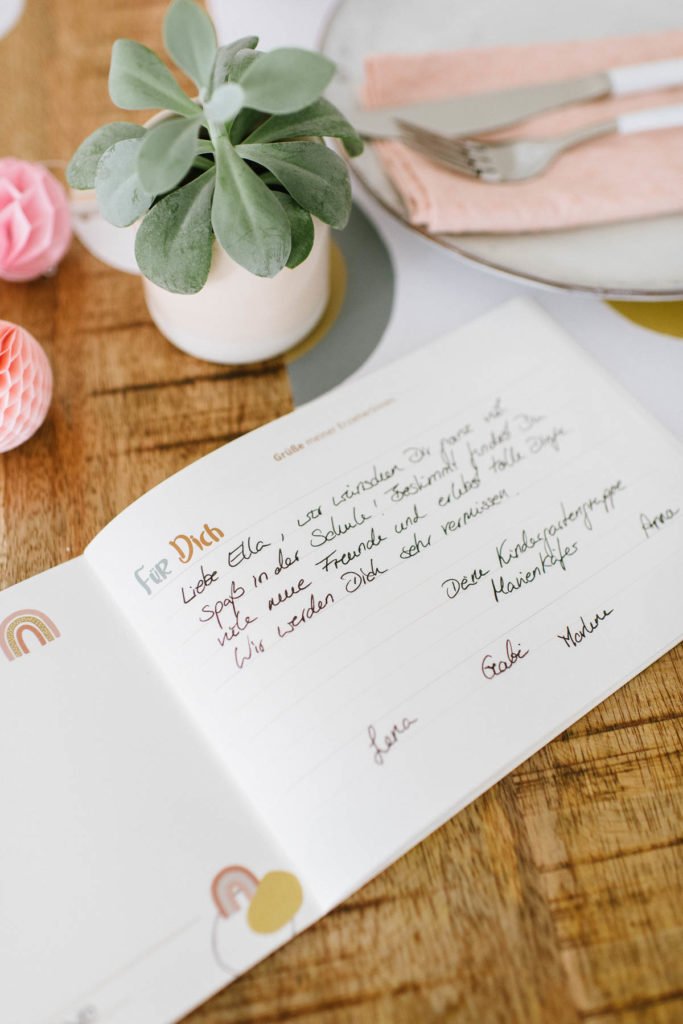 Grüße meiner Erzieherinnen
Für Dich
Liebe Ella, wir wünschen Dir ganz viel
Spaß in der Schule! Bestimmt findest Du
viele neue Freunde und erlebst tolle Dinge.
Wir werden Dich sehr vermissen.
Deine Kindergartengruppe
Marienkäfer
Anna
Marlene
Gabi
Lena